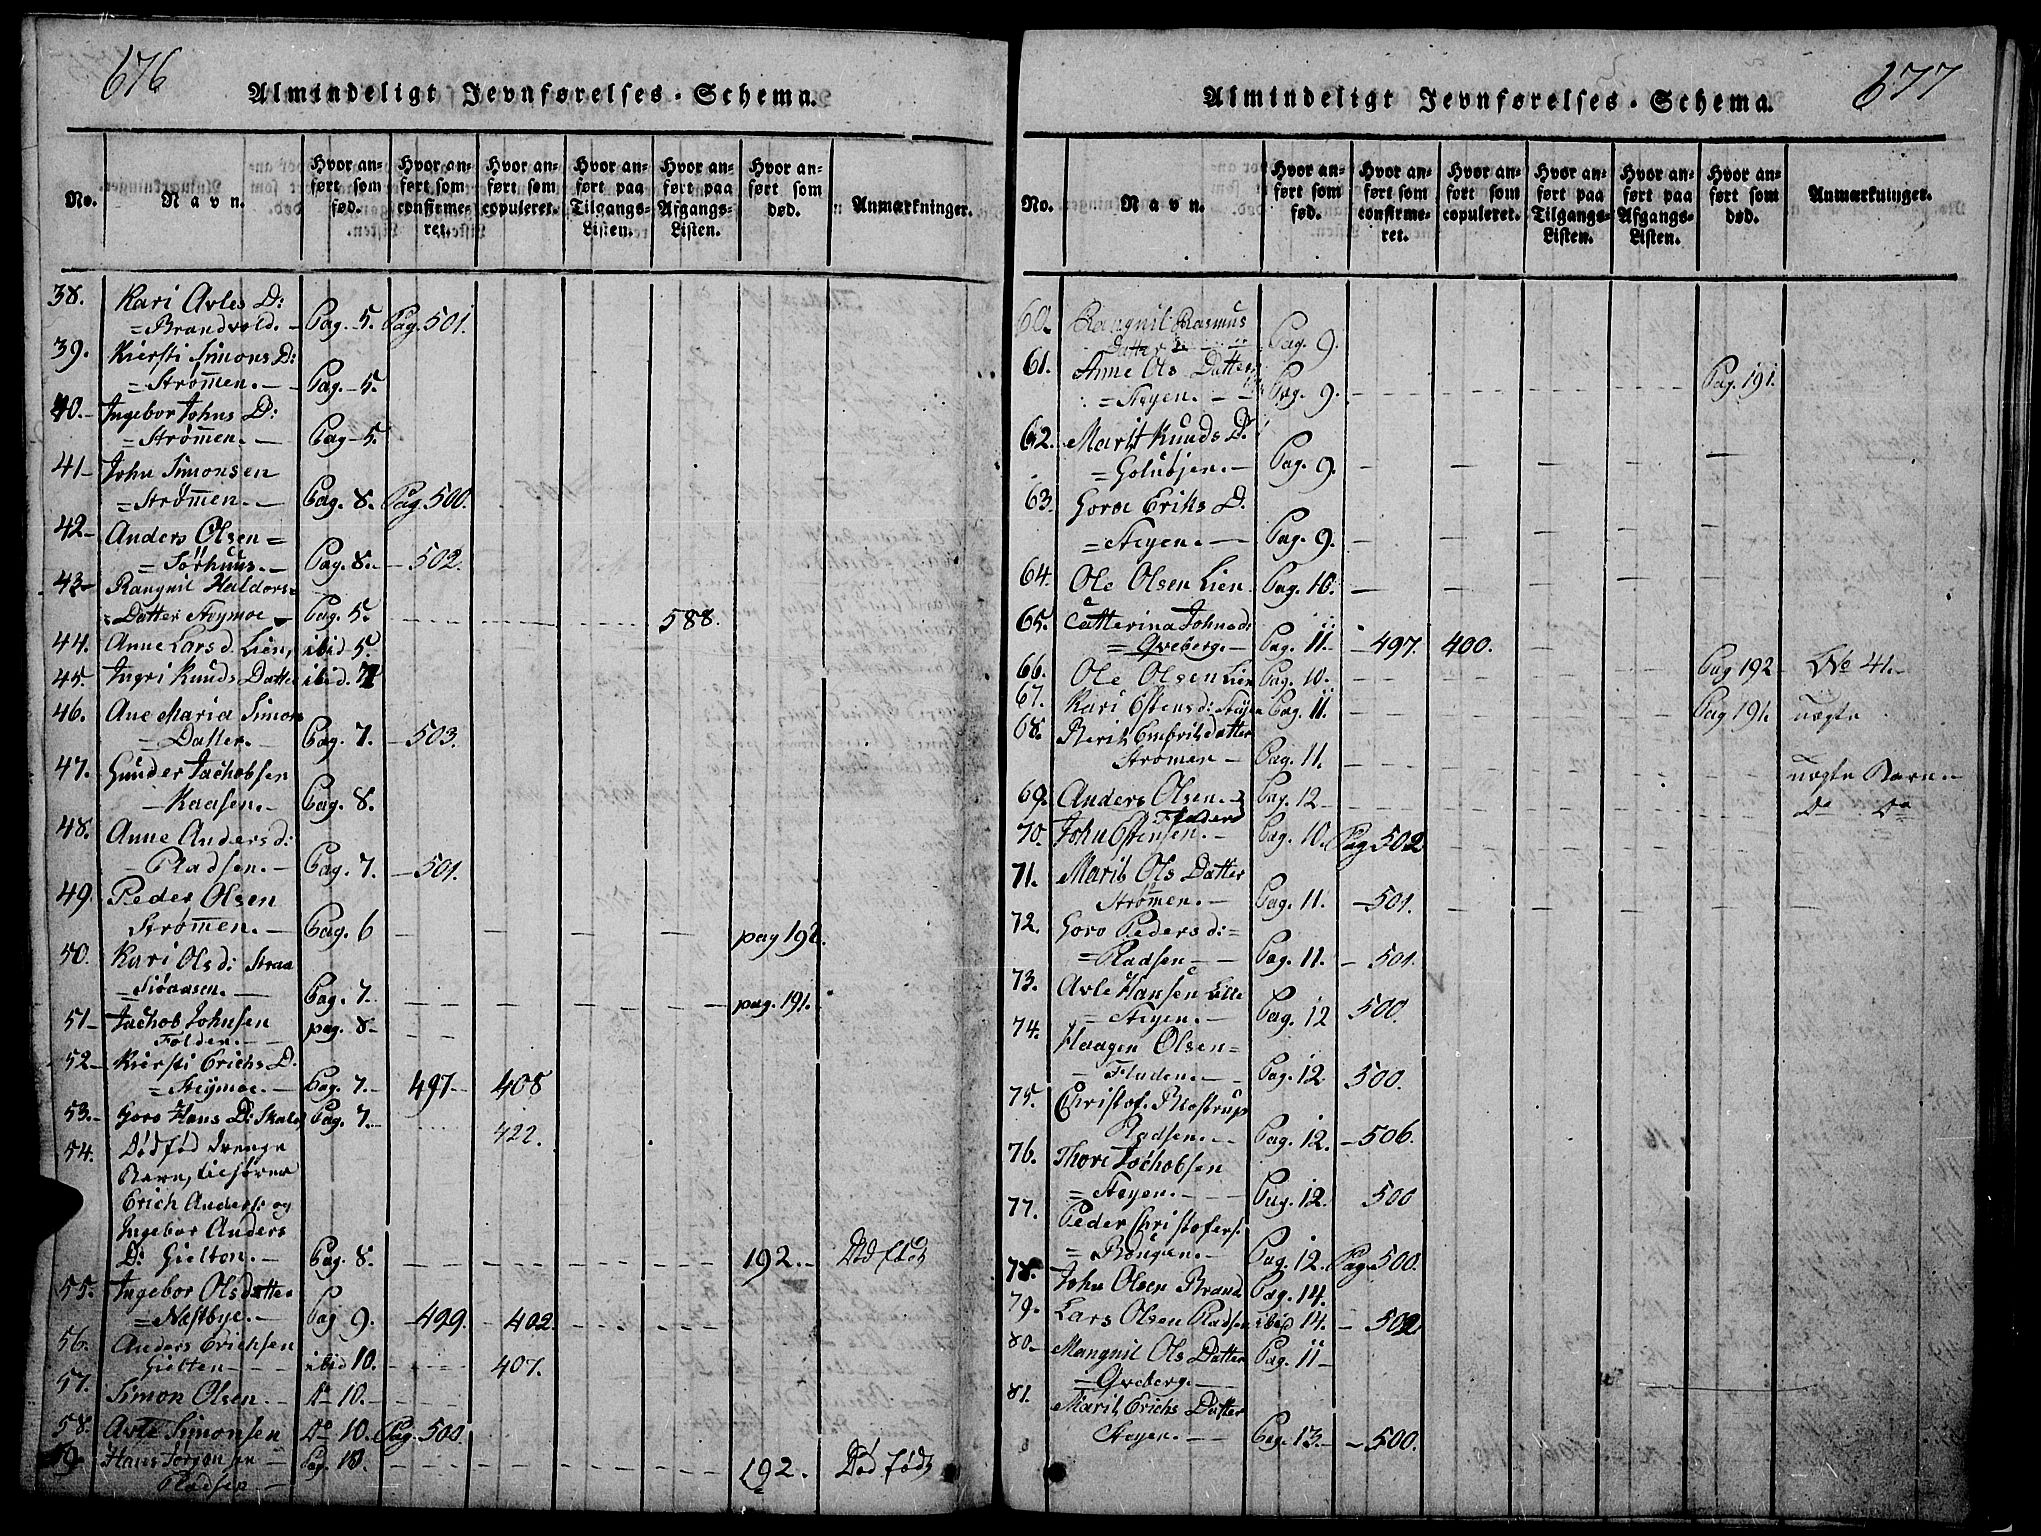 676
Almindeligt Jevnførelses-Schema.
No.
Navn.
Hvor anført som fød.
Hvor anført som confirmeret.
Hvor anført som copuleret.
Hvor anført paa Tilgangs-Listen.
Hvor anført paa Afgangs-Listen.
Hvor anført som død.
Anmærkninger.
38. Kari Avles D:
=Brandvold. Pag. 5. Pag. 501.
39. Kiersti Simons D:
=Strømen. Pag. 5.
40. Ingebor Johns D:
=Strømen. Pag. 5.
41 John Simonsen
=Strømen. Pag. 8. Pag. 500.
42 Anders Olsen=
=Sørhuus. Pag. 8. 502.
43 Rangnil Haldors=
Datter Steymoe Pag. 5. 588.
44. Anne Lars d. Lien, ibid 5.
45. Ingri Knuds Datter ibid. 7
46. Ane Maria Simons
Datter. Pag. 7. 503.
47. Gunder Jachobsen
Kaasen. Pag. 8.
48. Anne Anders d:
Pladsen. Pag. 7. 501.
49. Peder Olsen
Strømen. Pag. 6 pag 192.
50. Kari Ols d: Straa
Pag. 7. pag. 191.
51 Jachob Johnsen pag. 8
Folden.
52 Kiersti Erichs D.
=Steymoe. Pag. 7. 497 408
53. Goro Hans D: Pag. 7. 422.
54. Dødfød Drenge
Barn,
Erich Anders: og
Ingebor Anders
D: Gielton. Pag. 8. 192. Død født
55. Ingebor Olsdatter
=Nestbye. Pag 9. 499. 402.
56. Anders Erichsen
Gielten ibid 10. 407.
57. Simon Olsen. Do 10.
58. Avle Simonsen Do 10. Pag. 500.
59. Hans Jørgensen Pag. 10. 192. Død født
Pladsen
677
Almindeligt Jevnførelses-Schema.
No.
Navn.
Hvor anført som fød.
Hvor anført som confirmeret.
Hvor anført som copuleret.
Hvor anført paa Tilgangs-Listen.
Hvor anført paa Afgangs-Listen.
Hvor anført som død.
Anmærkninger.
60. Rangnil Rasmus
Datter Pag. 9.
61. Anne Ols Datter Pag. 191.
=Steyen. Pag. 9.
62. Marit Knuds D.
Pag. 9.
63. Goroe Eriks D.
=Steyen. Pag. 9.
64. Ole Olsen Lien Pag. 10.
65. Catterina Johns d:
=Qveberg. Pag. 11. 497. 400.
66. Ole Olsen Lien Pag. 10. Pag 192 No 41.
67. Kari Estens d: Steyen Pag. 11. Pag 191. uægte
68. Berit Embriksdatter
Stromen Pag. 11. uægte Barn.
69. Anders Olsen. Pag. 12 Do Do
70. John Estensen. Pag. 10. Pag 502
71. Marit Ols Datter
Strømen. Pag. 11. 501.
72. Goro Peders d:=
=Pladsen Pag. 11. 501.
73. Avle Hansen Lille
=Steyen. Pag. 12 500.
74. Haagen Olsen=
Fladen. Pag. 12. 500.
75. Christof. Blostrup
Pladsen. Pag. 12. 506.
76. Thore Jachobsen
=Steyen. Pag. 12. 500
77. Peder Christofers.
= Pag. 12. Pag. 500.
78. John Olsen Brand Pag. 14.
79. Lars Olsen Pladsen ibid 14. 502
80. Mangnil Ols Datter Pag. 11
=Qveberg.
81. Marit Erichs Datter
Steyen. Pag. 13. 500.